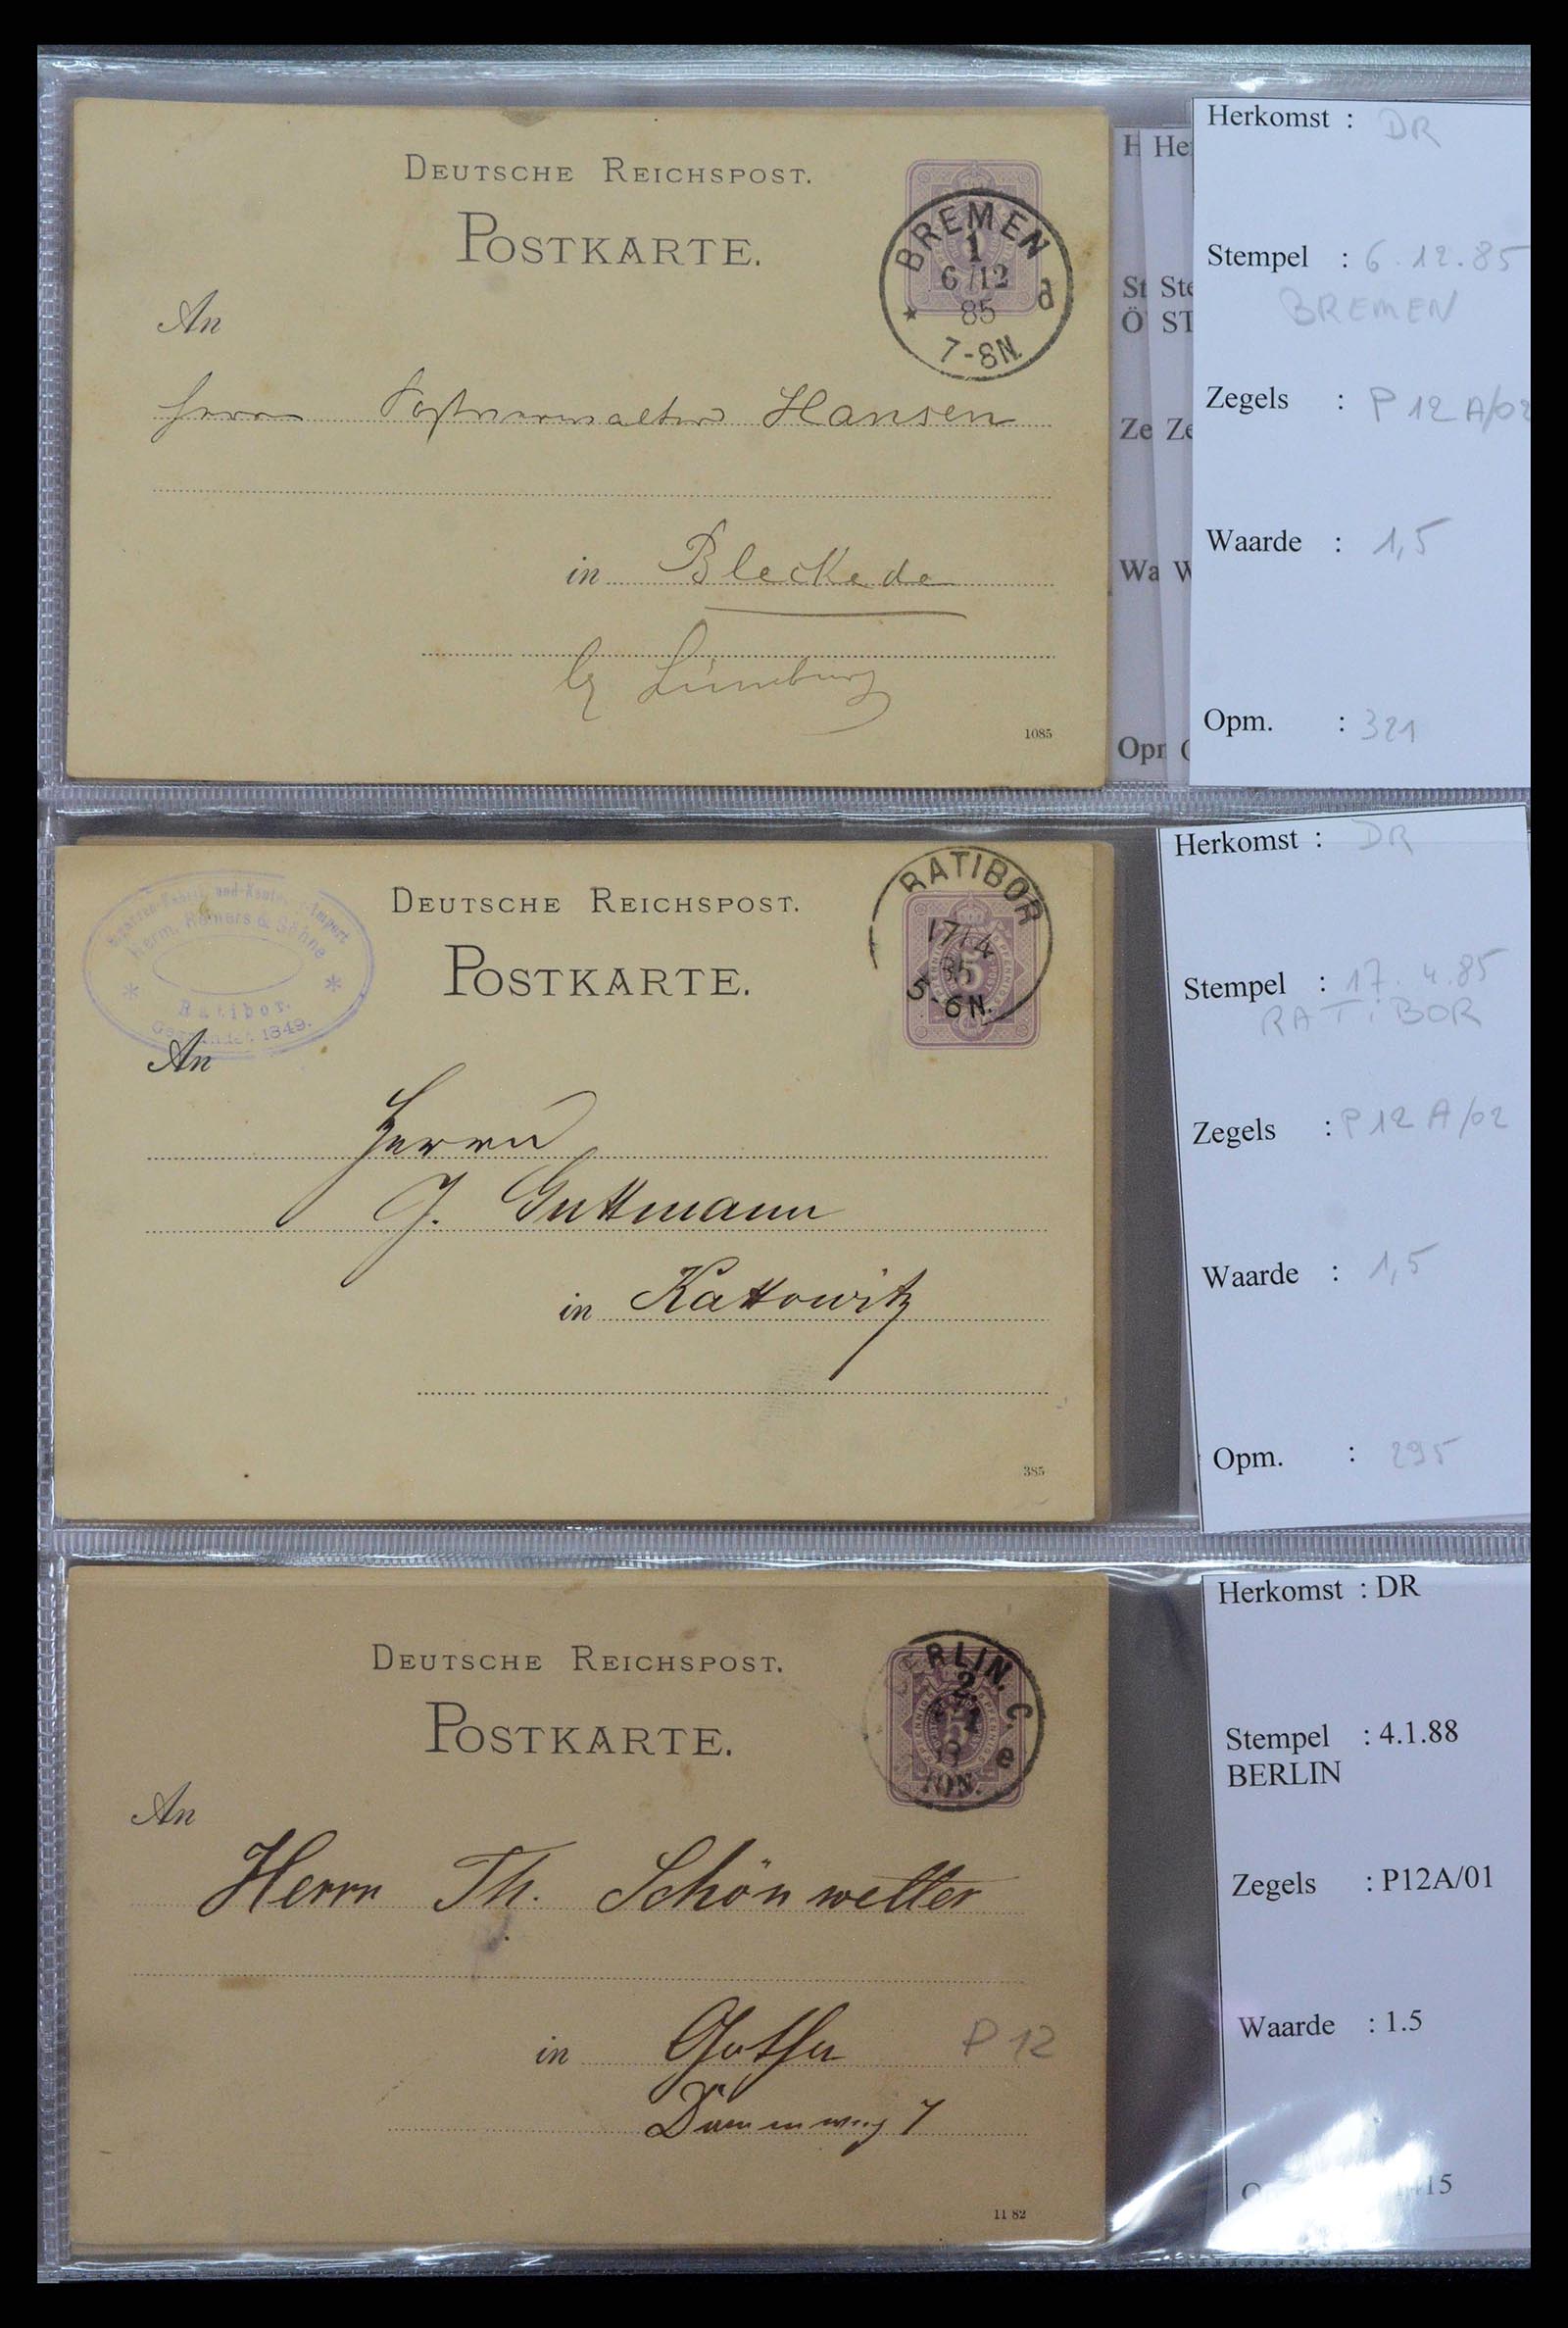 DEUTSCHE REICHSPOST.
POSTKARTE.
BREMEN
1
6/12
85
d
7-8N.
An
Herrn Postverwalter Hansen
in Bleckede
Lüneburg
1085
H He
St Ste
Ö ST
Ze Ze
Wa W
Opm
Herkomst : DR
Stempel : 6.12.85
BREMEN
Zegels : P 12 A/02
Waarde : 1,5
Opm. : 321
Herm. Reiners & Söhne
Ratibor.
1849.
DEUTSCHE REICHSPOST.
POSTKARTE.
RATIBOR
17/4
85
5-6N.
5
An
Herrn
J. Guttmann
in Kattowitz
385
Herkomst : DR
Stempel : 17.4.85
RATIBOR
Zegels : P 12 A/02
Waarde : 1,5
Opm. : 295
DEUTSCHE REICHSPOST.
POSTKARTE.
BERLIN. C.
2.
e
10N.
An
Herrn Th. Schönwetter
in Gotha
P 12
Dammweg 7
11 82
Herkomst : DR
Stempel : 4.1.88
BERLIN
Zegels : P12A/01
Waarde : 1.5